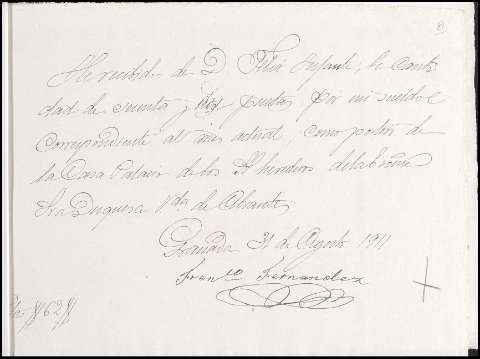 He recibido de D. Felix Infante, la canti
dad de sesenta y dos pesetas por mi sueldo
correspondiente al mes actual, como portero de
la Casa Palacio de los Herederos de la Exma
Sra Duquesa Vda de Abrantes
Granada 31 de Agosto 1911
Franco Fernandez
#62#